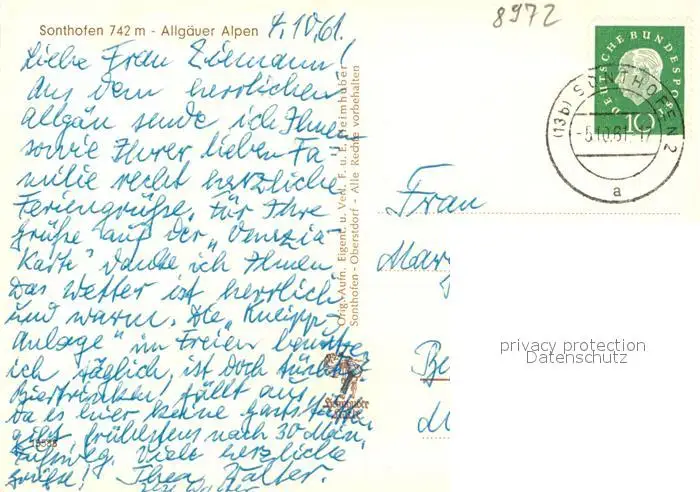 8972
Sonthofen 742 m - Allgäuer Alpen 4.10.61.
Liebe Frau
Aus dem herrlichen
Allgäu sende ich Ihnen
sowie Ihrer lieben Fa-
milie recht herzliche
Feriengrüße. Für Ihre
Grüße auf der „Venezia-
Karte" danke ich Ihnen.
Das Wetter ist herrlich
und warm. Die „Kneipp-
Anlage" im Freien
ich täglich, ist doch
Biertrinken, fällt aus,
da es hier keine
gibt, frühstens nach 30 Min.
Fußweg. Viele herzliche
Grüße! Ihr Walter.
Orig.-Aufn. Eigent. u. Verl. F. u. E. Heimhuber
Sonthofen-Oberstdorf - Alle Rechte vorbehalten
DEUTSCHE BUNDESPOST
10
(13b) SONTHOFEN 2
-5.10.61-17
a
Frau
privacy protection
Datenschutz